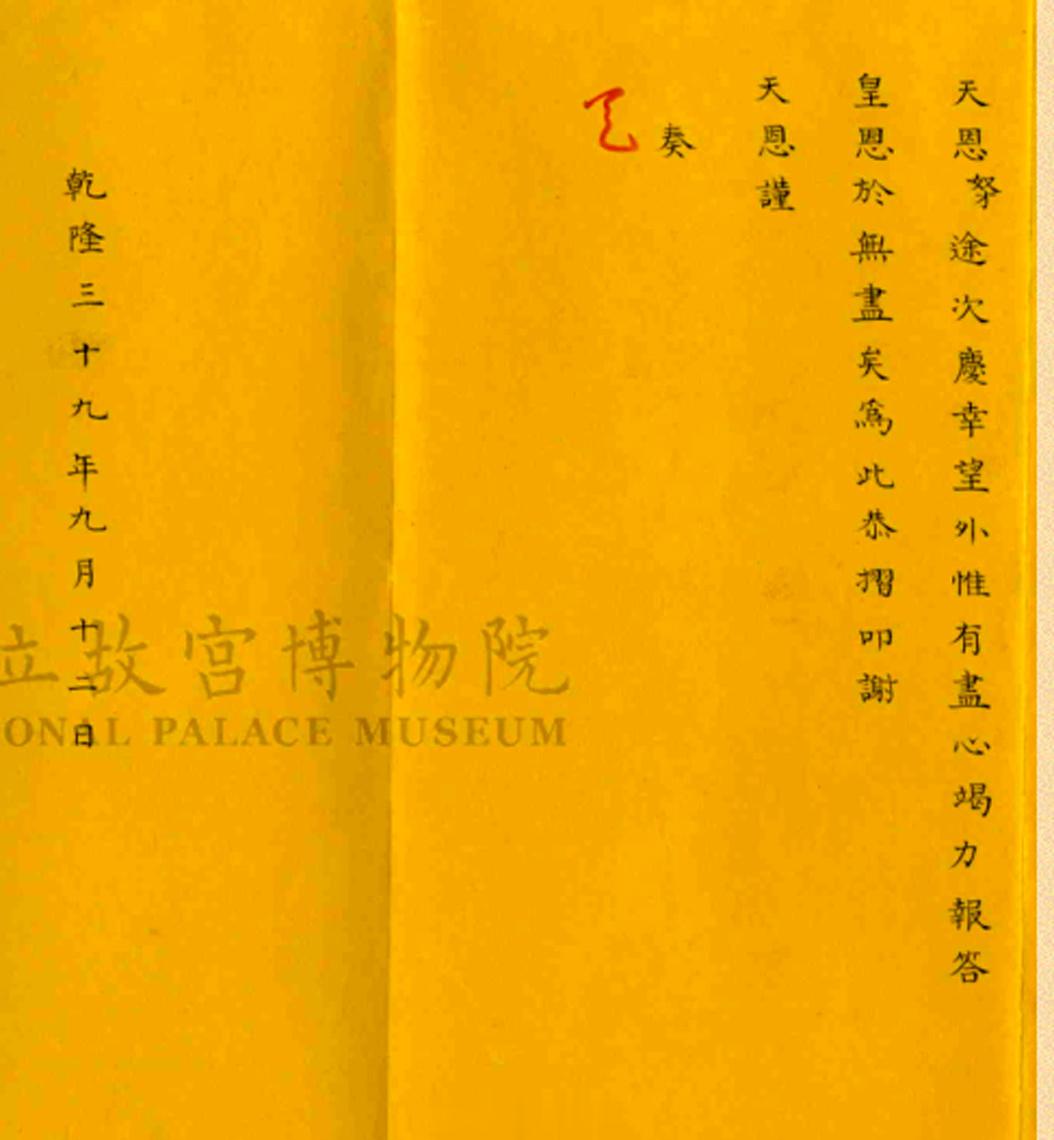 天恩奴才途次慶幸望外惟有盡心竭力報答
皇恩於無盡矣爲此恭摺叩謝
天恩謹
奏
覽
乾隆三十九年九月十二日
立故宮博物院
ONAL PALACE MUSEUM